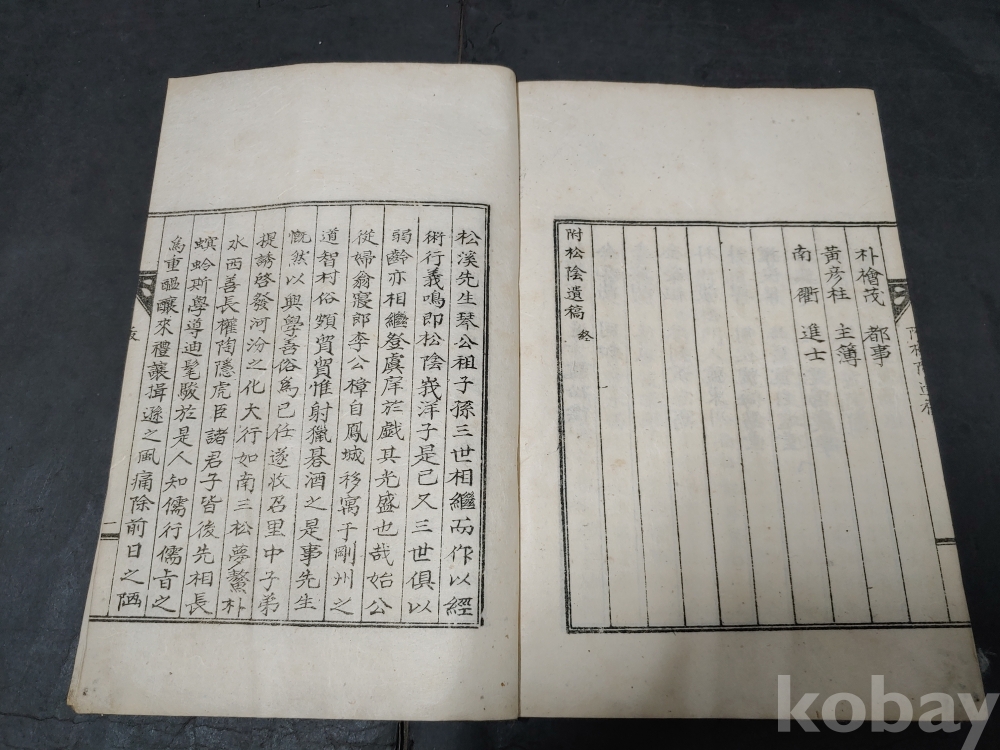 朴檜茂　都事
黃彦柱　主簿
南　衢　進士
附松陰遺稿　終
松溪先生琴公祖子孫三世相繼而作以經
術行義鳴即松陰峩洋子是已又三世俱以
弱齡亦相繼登虞庠於戲其光盛也哉始公
從婦翁寢郎李公樟自鳳城移寓于剛州之
道智村俗頗貿貿惟射獵碁酒之是事先生
慨然以興學善俗為己任遂收召里中子弟
提誘啓發河汾之化大行如南三松夢鰲朴
水西善長權陶隱虎臣諸君子皆後先相長
螟蛉斯學導迪髦駿於是人知儒行儒言之
為重醞釀來禮讓揖遜之風痛除前日之陋
跋
一
kobay